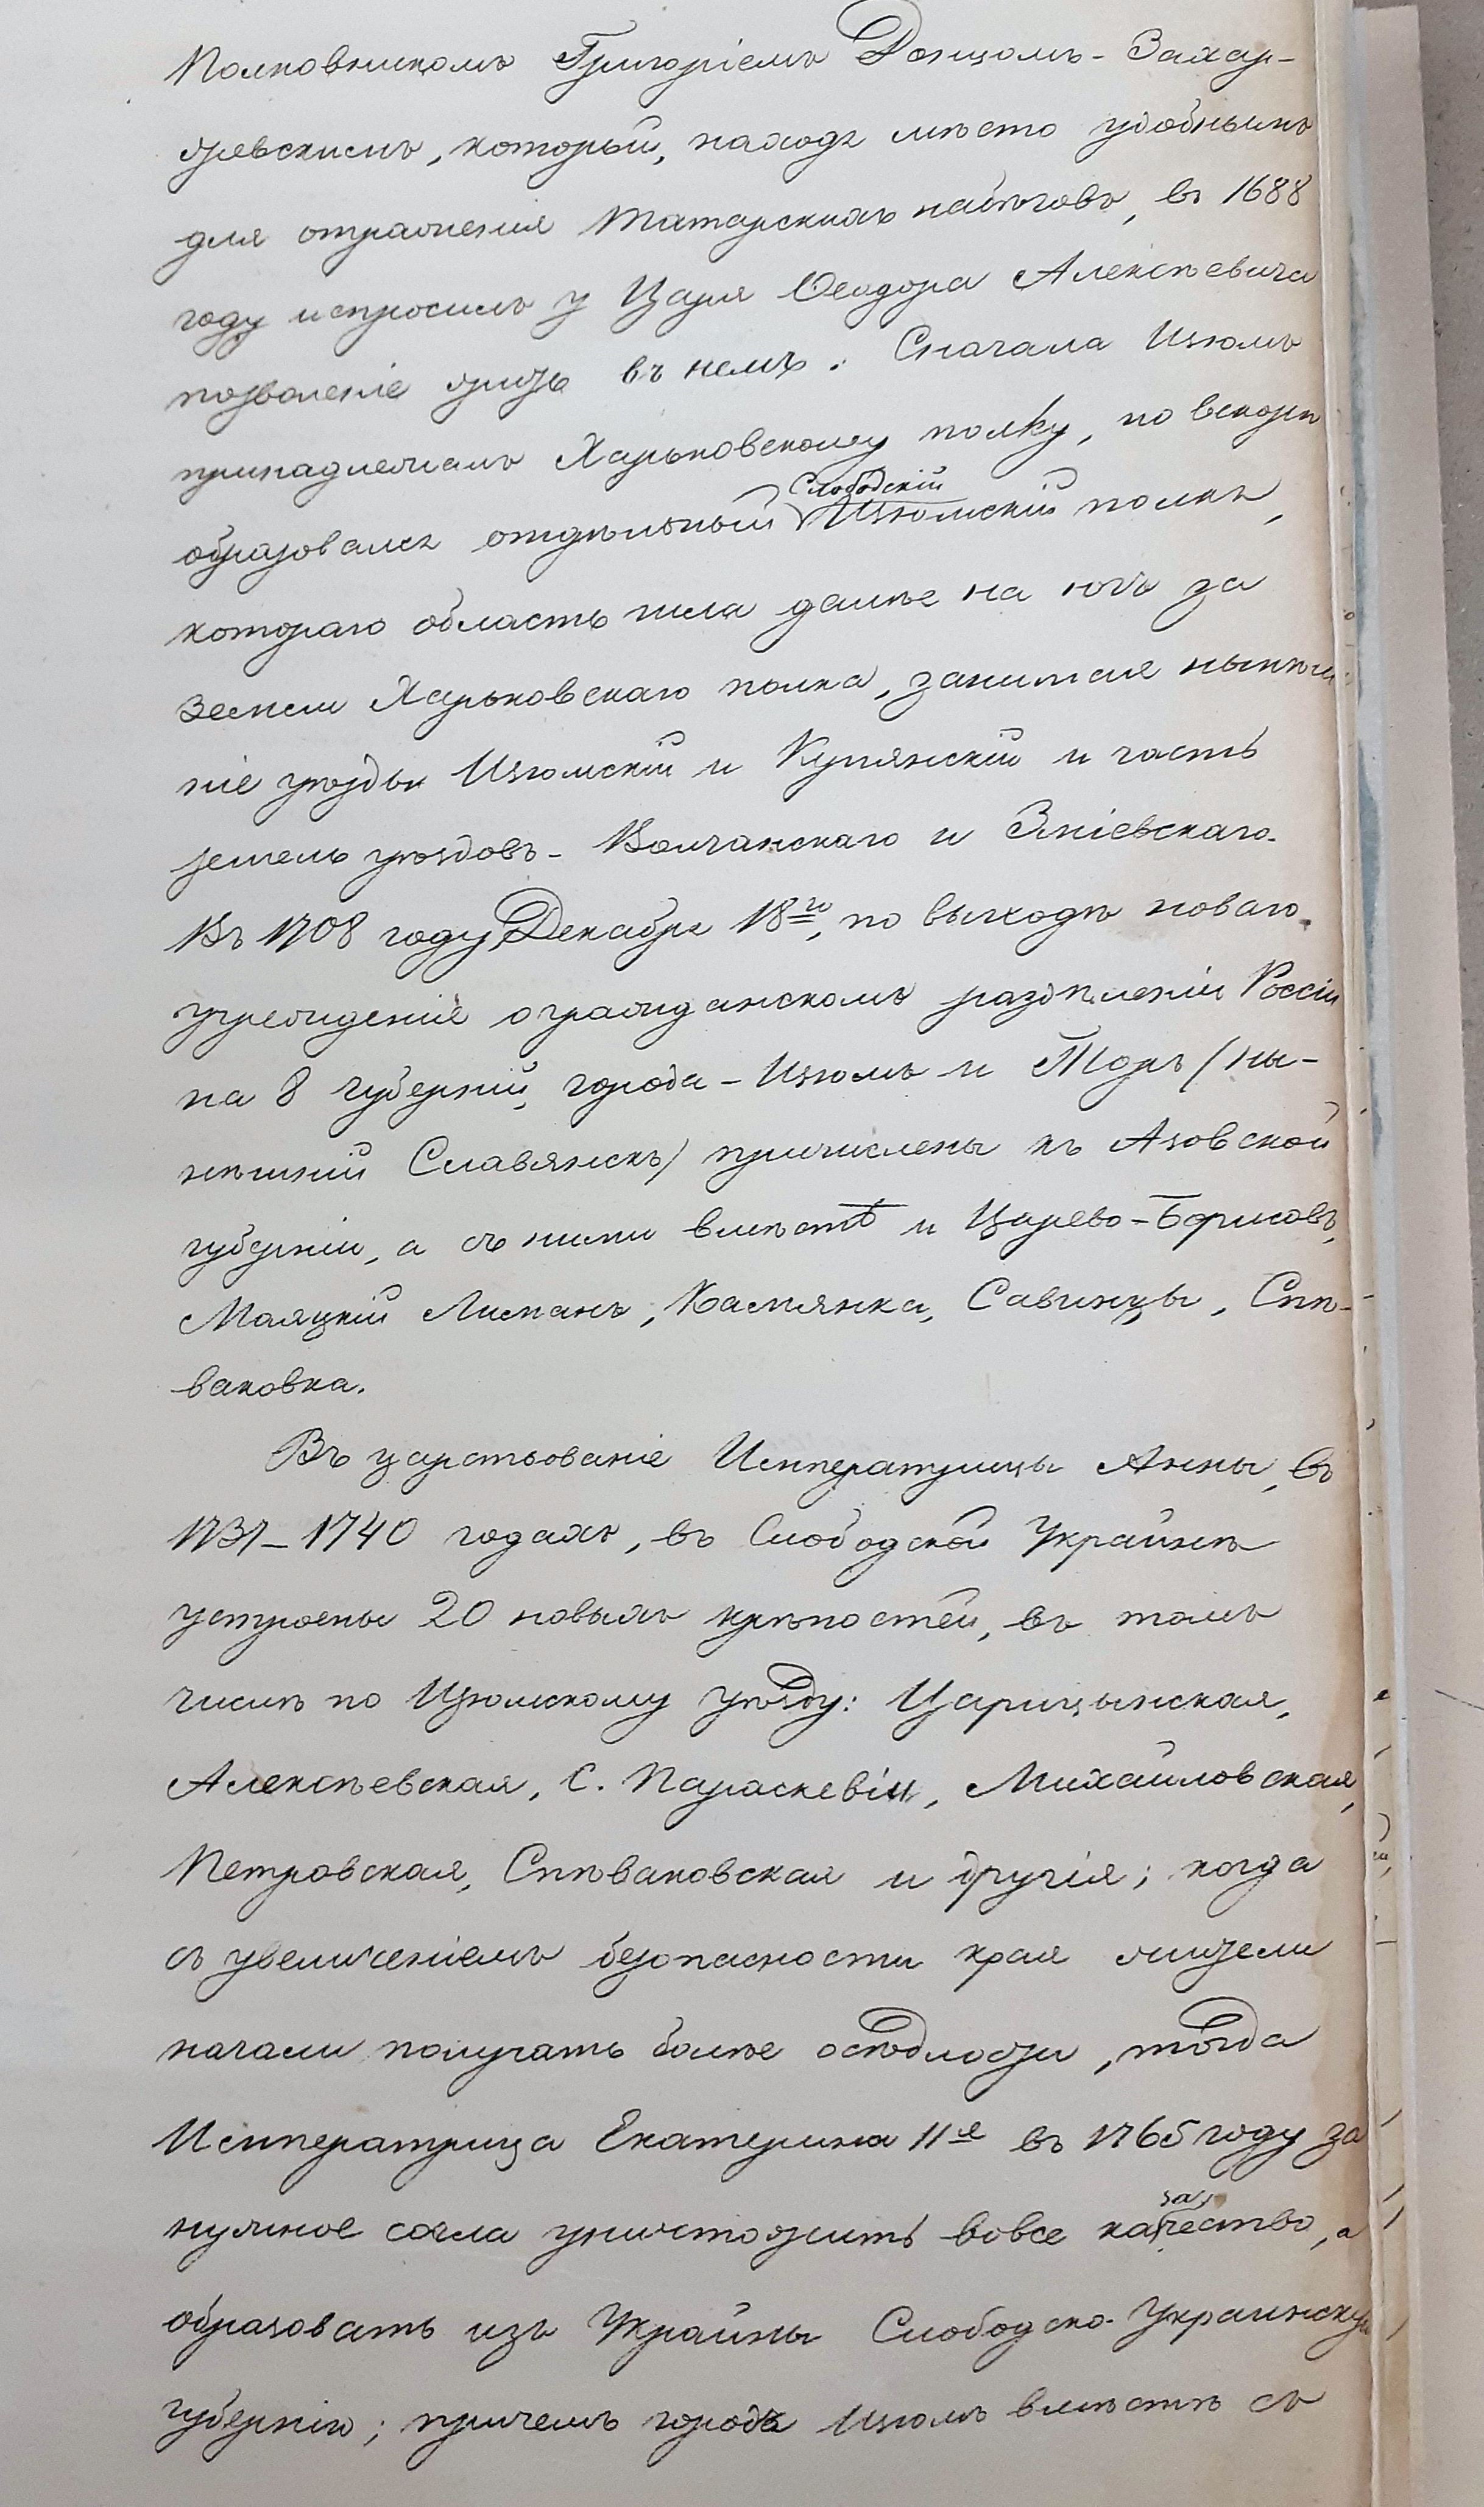 Полковникомъ Григоріемъ Донцомъ-Захар-
жевскимъ, который, находя мѣсто удобнымъ
для отраженія татарскихъ набѣговъ, въ 1688
году испросилъ у Царя Ѳеодора Алексѣевича
позволеніе жить въ немъ. Сначала Изюмъ
принадлежалъ Харьковскому полку, но вскорѣ
образовался отдѣльный Слободскій Изюмскій полкъ,
котораго область шла далѣе на югъ за
земли Харьковскаго полка, занимая нынѣш-
ніе уѣзды Изюмскій и Купянскій и часть
земель уѣздовъ - Волчанскаго и Зміевскаго.
Въ 1708 году Декабря 18го, по выходѣ новаго
учрежденіе о гражданскомъ раздѣленіи Россіи
на 8 губерній, города - Изюмъ и Торъ (ны-
нѣшній Славянскъ) причислены къ Азовской
губерніи, а съ ними вмѣстѣ и Царево-Борисовъ,
Маяцкій Лиманъ, Камянка, Савинцы, Спѣ-
ваковка.
Въ царствованіе Императрицы Анны, въ
1737-1740 годахъ, въ Слободской Украйнѣ
устроены 20 новыхъ крѣпостей, въ томъ
числѣ по Изюмскому уѣзду: Царицынская,
Алексѣевская, С. Параскевіи, Михайловская,
Петровская, Спѣваковская и другія; когда
съ увеличеніемъ безопасности края жители
начали получать болѣе осѣдлости, тогда
Императрица Екатерина IIя въ 1765 году за
нужное сочла уничтожить вовсе казачество, а
образовать изъ Украйны Слободско-Украинскую
губернію; причемъ городъ Изюмъ вмѣстѣ съ